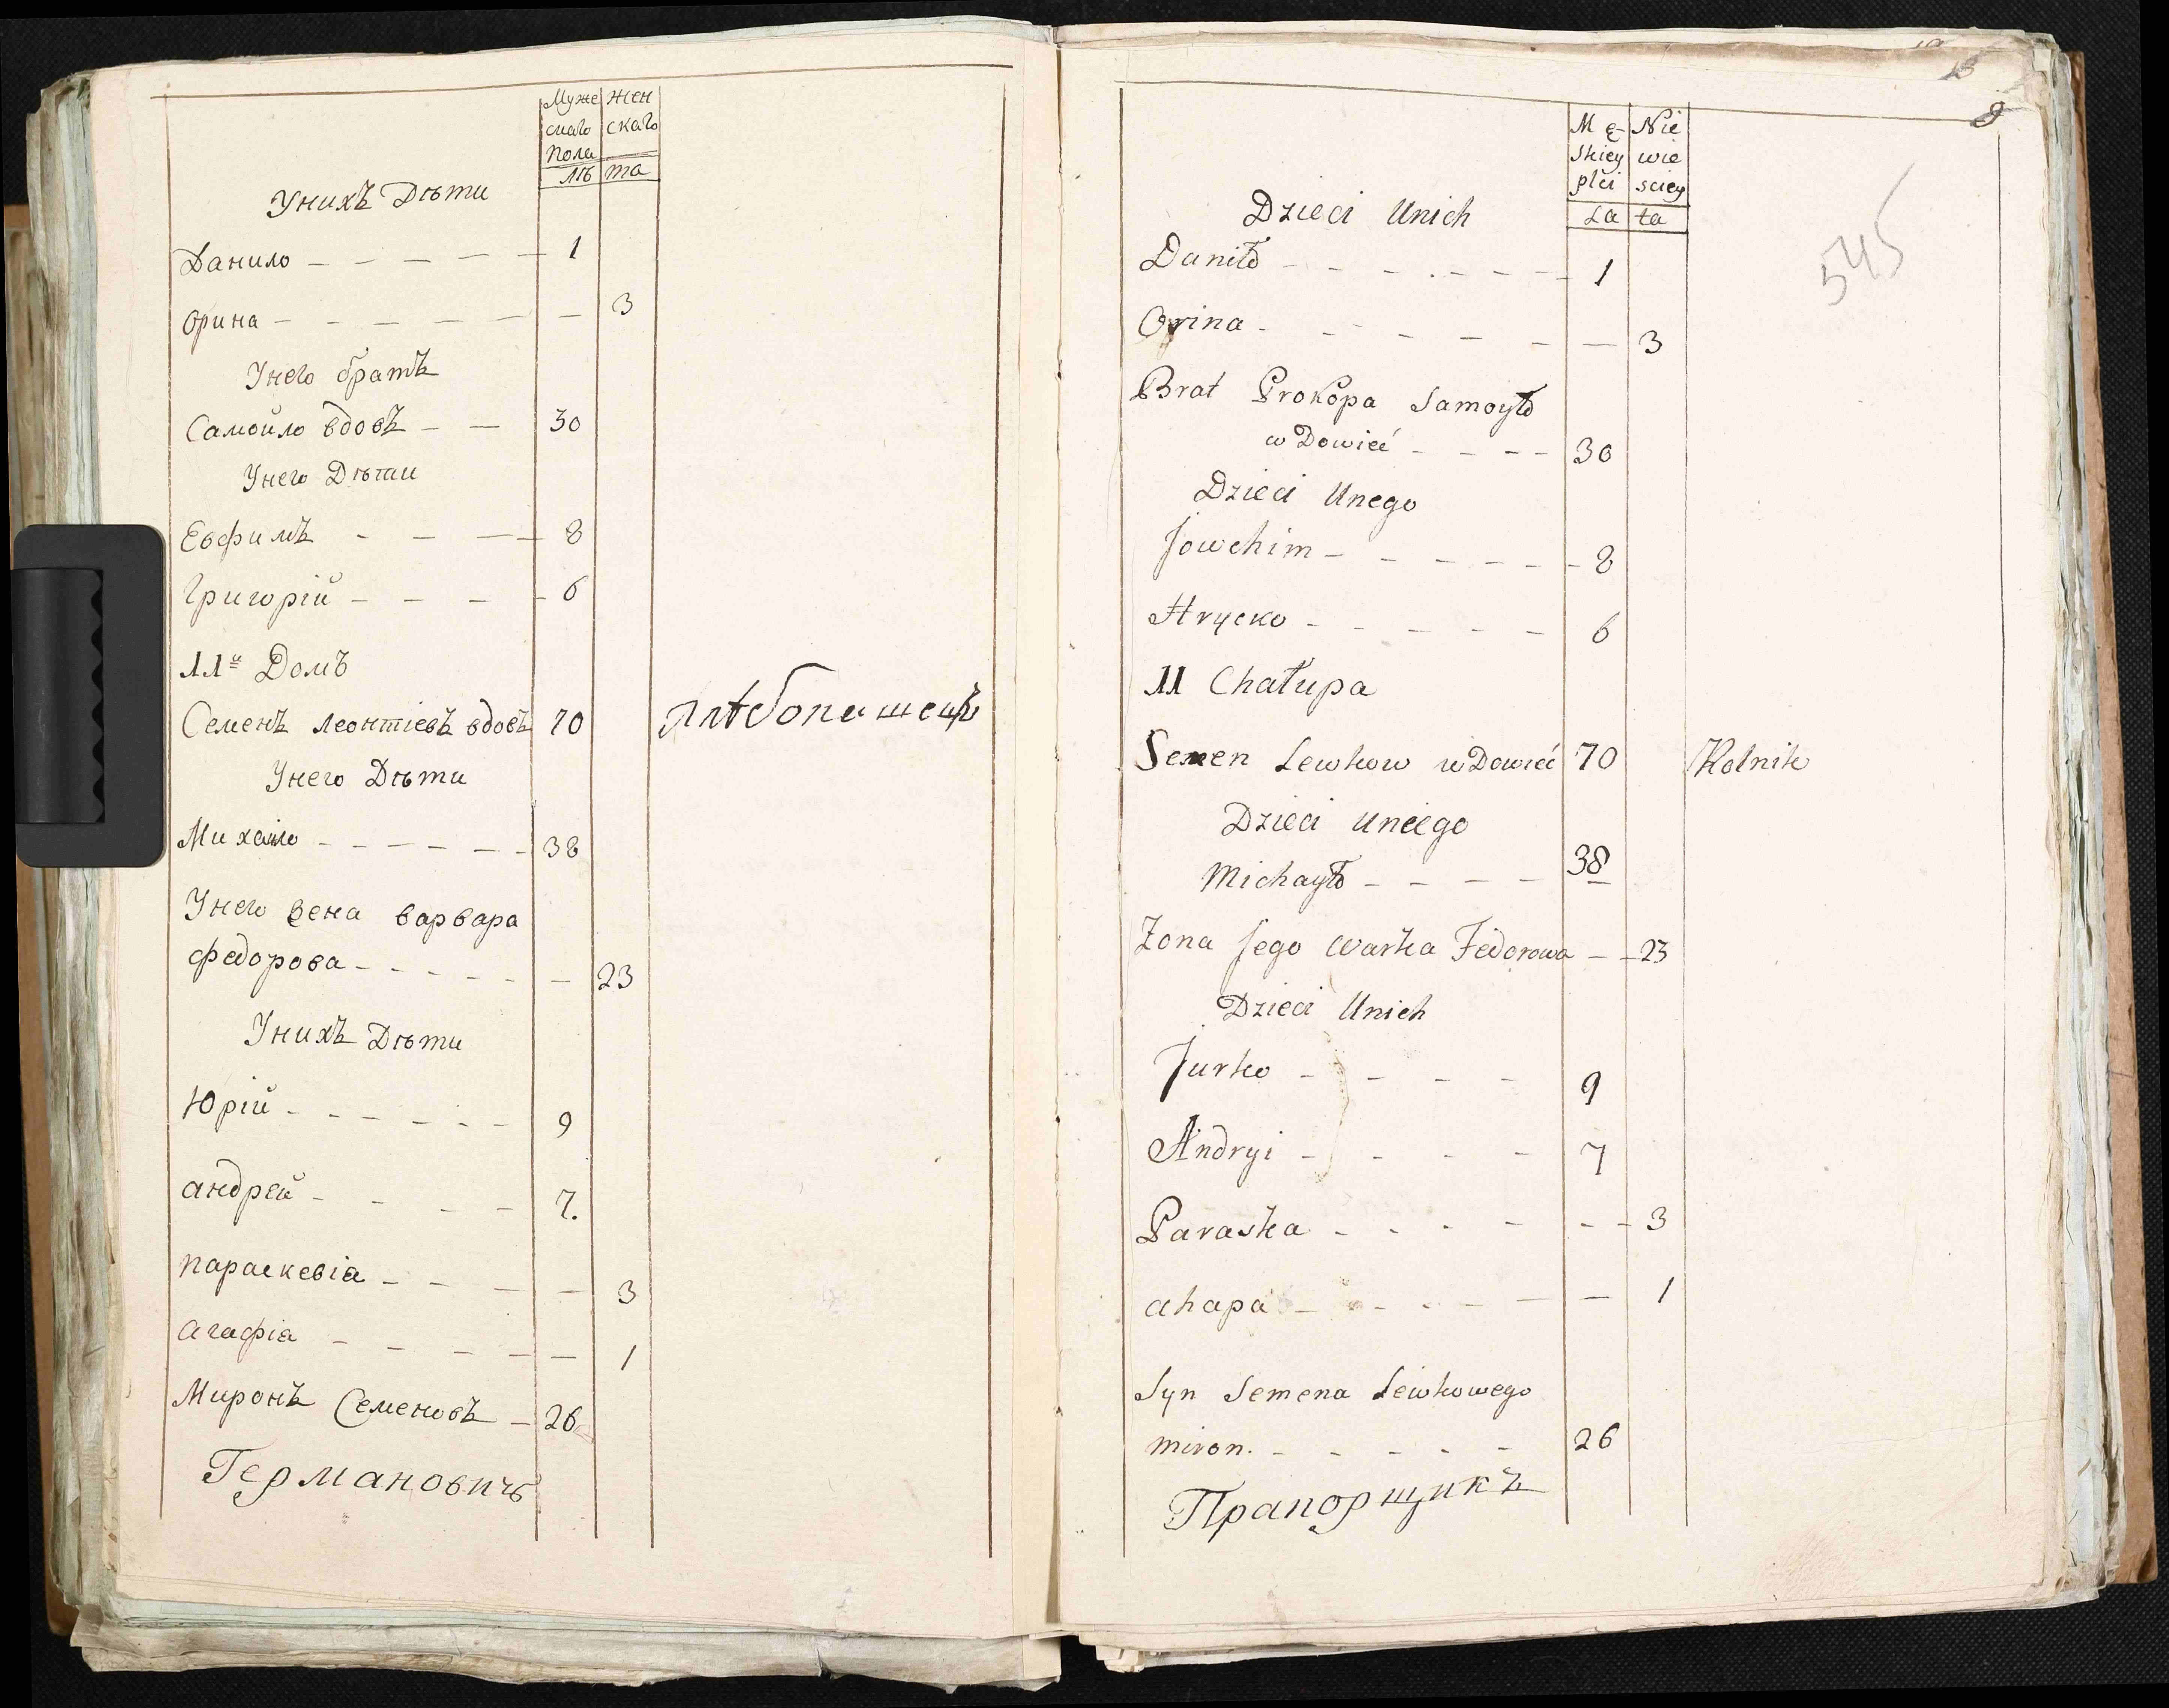 Муже жен
скаго скаго
пола
лѣ та
Унихъ Дѣти
Данило — — — — — 1
Орина — — — — — — 3
Унего братъ
Самойло вдовъ — — 30
Унего Дѣти
Евфимъ - — — — 8
Григорій — — — — 6
11й Домъ
Семенъ Леонтіевъ вдовъ 70 хлѣбопашецъ
Унего Дѣти
Михайло — — — — — — 38
Унего Жена Варвара
Федорова — — — — — — 23
Унихъ Дѣти
Юрій - - - - - - 9
Андрей - - - - 7.
Параскевіа — — — — 3
Агафіа — — — — — 1
Миронъ Семеновъ — 26
Германовичъ
9
545
Mę Nie
skiey wie
płci sciey
La ta
Dzieci Unich
Daniło - - - - - - - 1
Orina - - - - - - — 3
Brat Prokopa Samoyło
wDowieć - - - - 30
Dzieci Unego
Jowchim - - - - - - - 8
Hrycko - - - - - 6
11 Chałupa
Semen Lewkow wDowieć 70 Rolnik
Dzieci Uniego
Michayło - - - - 38
Zona Jego Warka Fedorowa - - 23
Dzieci Unich
Jurko - - - - 9
Andryi - - - - 7
Paraska - - - - - - 3
Ahapa - - - - - — — 1
Syn Semena Lewkowego
Miron. - - - - - 26
Прапорщикъ